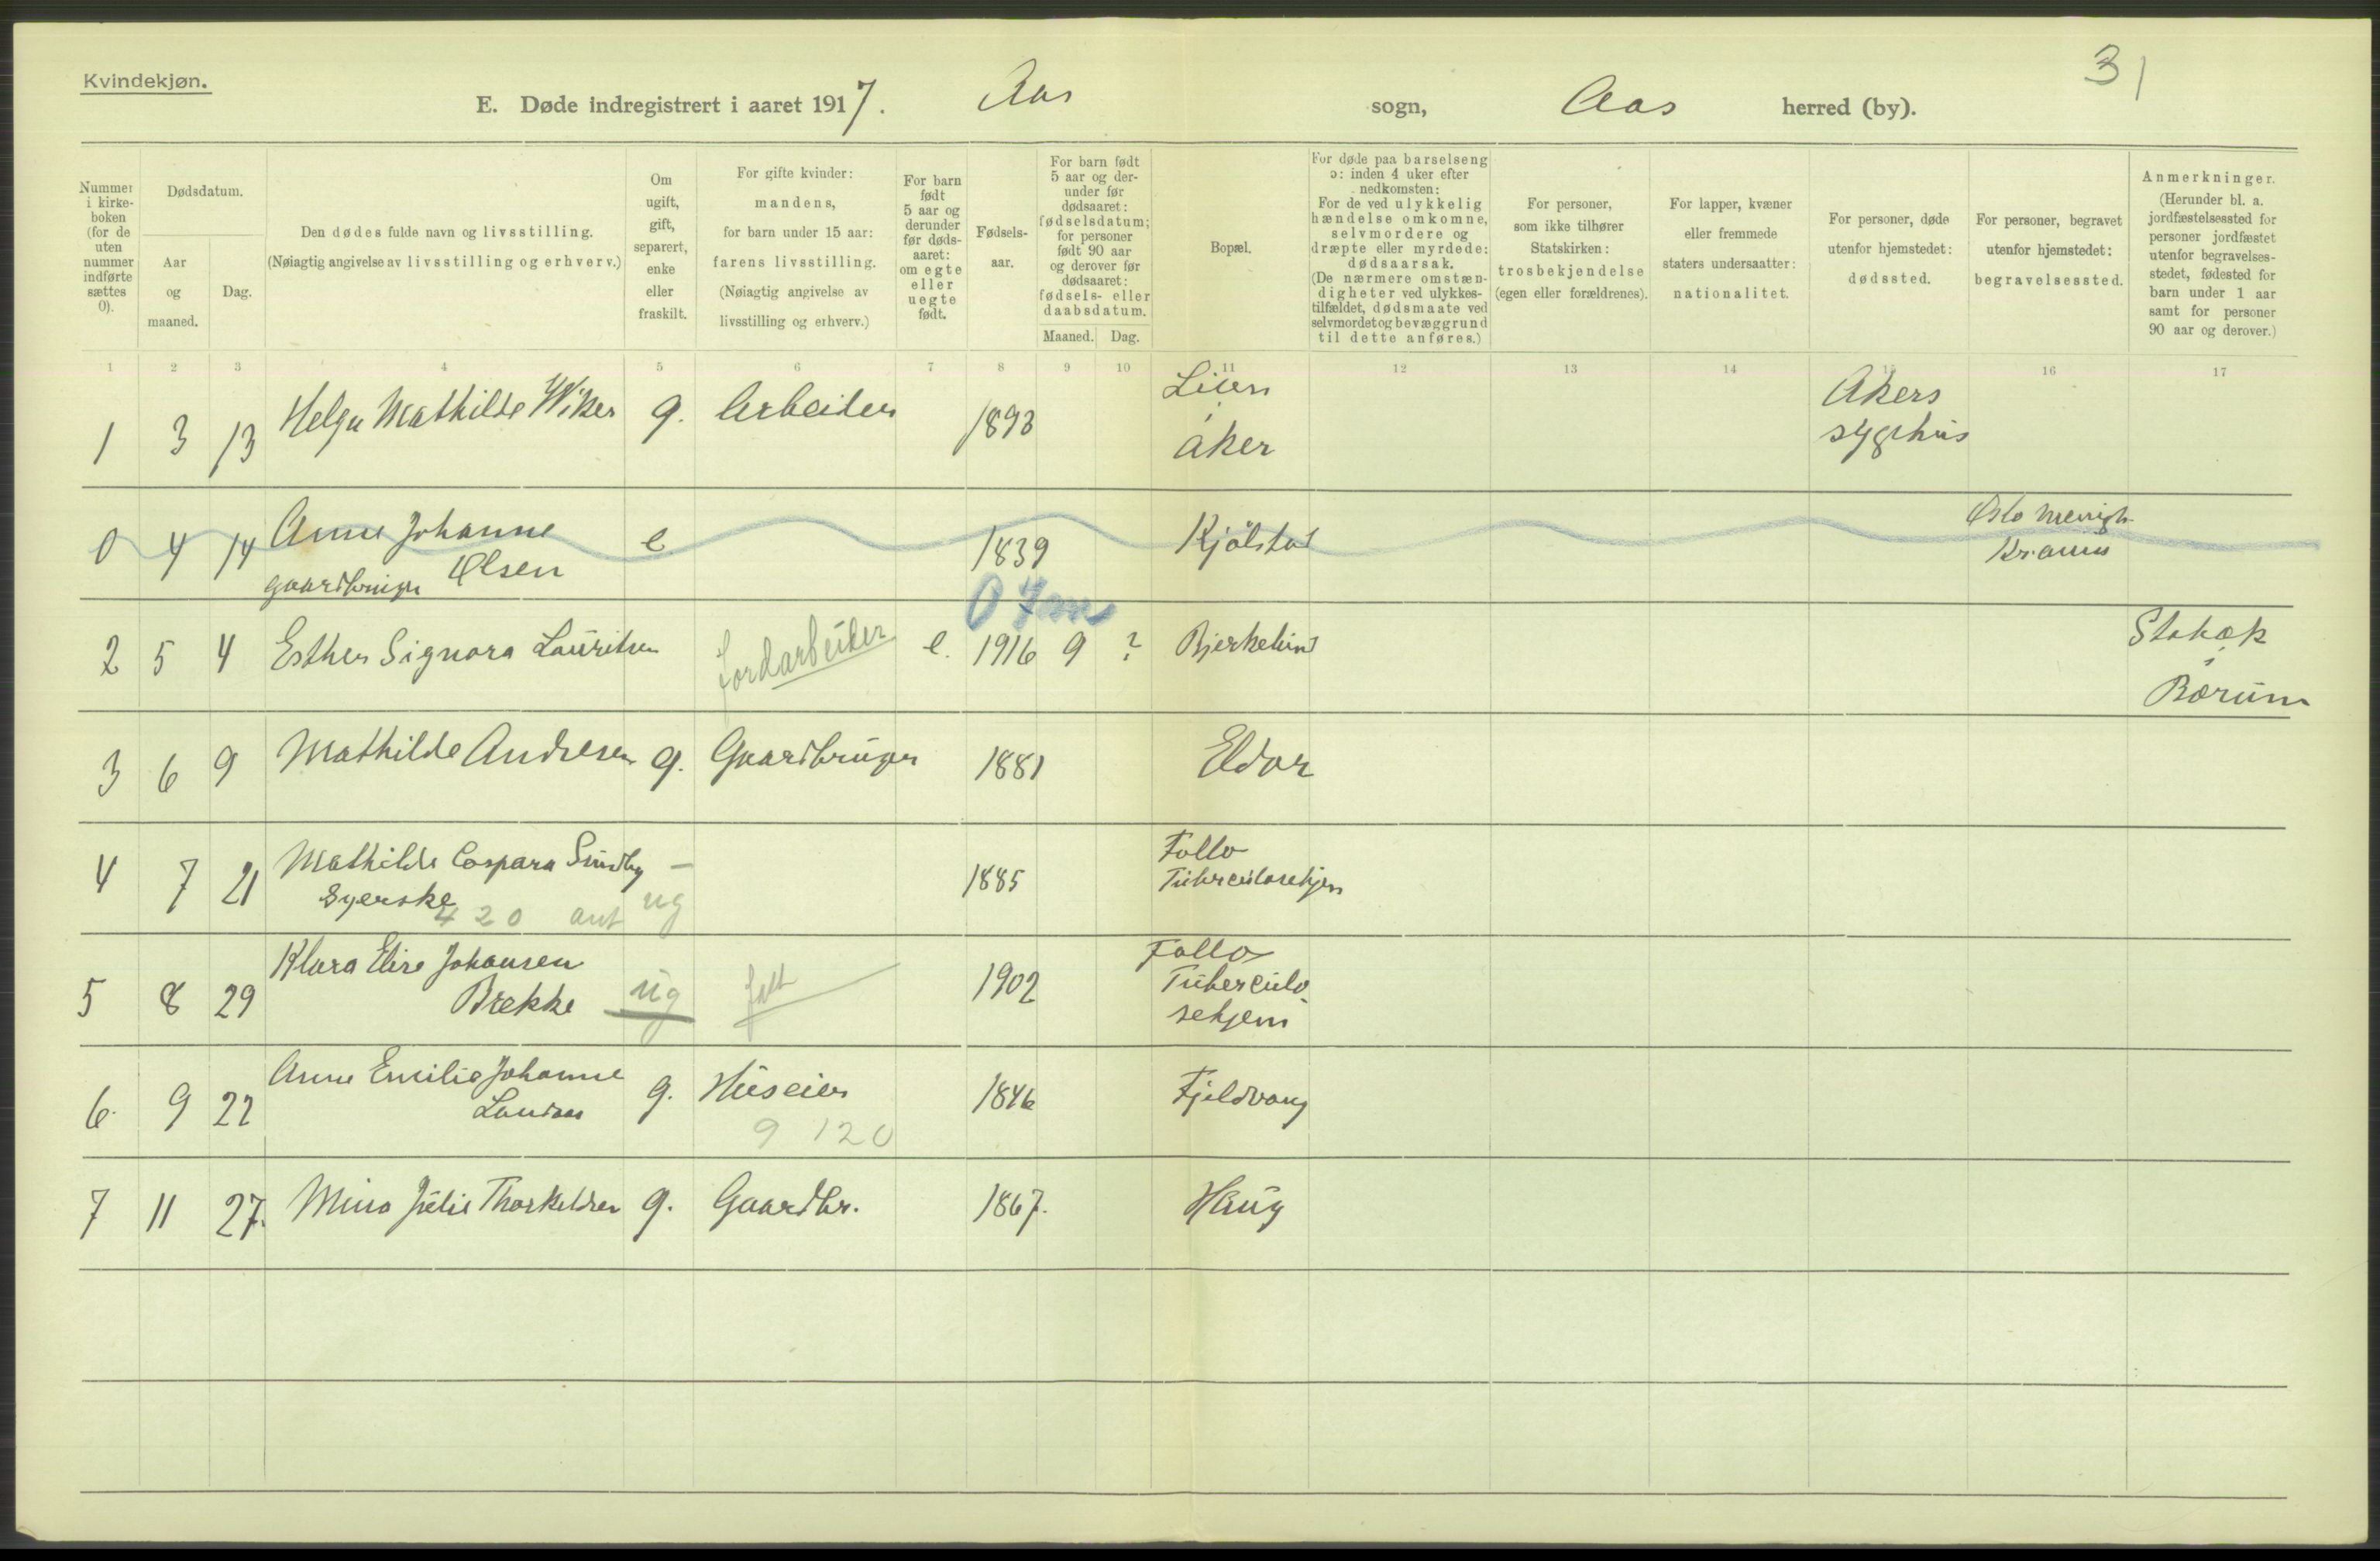 Kvindekjøn.
31
E. Døde indregistrert i aaret 1917. Aas sogn, Aas herred (by).
Nummer i kirke-boken (for de uten nummer indførte sættes 0).
Dødsdatum.
Aar og maaned.
Dag.
Den dødes fulde navn og livsstilling.
(Nøiagtig angivelse av livsstilling og erhverv.)
Om ugift, gift, separert, enke eller fraskilt.
For gifte kvinder: mandens, for barn under 15 aar: farens livsstilling. (Nøiagtig angivelse av livsstilling og erhverv.)
For barn født 5 aar og derunder før døds-aaret: om egte eller uegte født.
Fødsels-aar.
For barn født 5 aar og der-under før dødsaaret: fødselsdatum; for personer født 90 aar og derover før dødsaaret: fødsels- eller daabsdatum.
Maaned. Dag.
Bopæl.
For døde paa barselseng ɔ: inden 4 uker efter nedkomsten: For de ved ulykkelig hændelse omkomne, selvmordere og dræpte eller myrdede: dødsaarsak. (De nærmere omstæn-digheter ved ulykkes-tilfældet, dødsmaate ved selvmordet og bevæggrund til dette anføres.)
For personer, som ikke tilhører Statskirken: trosbekjendelse (egen eller forældrenes).
For lapper, kvæner eller fremmede staters undersaatter: nationalitet.
For personer, døde utenfor hjemstedet: dødssted.
For personer, begravet utenfor hjemstedet: begravelsessted.
Anmerkninger. (Herunder bl. a. jordfæstelsessted for personer jordfæstet utenfor begravelses-stedet, fødested for barn under 1 aar samt for personer 90 aar og derover.)
1 2 3 4 5 6 7 8 9 10 11 12 13 14 15 16 17
1 3 13 Helga Mathilde Wiker g. Arbeider 1893 Lien i Aker Akers sygehus
0 4 14 Anne Johanne Olsen gaardbruger e 1839 Kjølstad Oslo Kr.ania
2 5 4 Esther Signora Lauritsen jordarbeider e. 0 1916 9 ? Bjerkelund Stabæk i Bærum
3 6 9 Mathilde Andresen g. Gaardbruger 1881 Eldor
4 7 21 Mathilde Caspara Sundby - Syerske 420 ant ug 1885 Follo Tuberculosehjem
5 8 29 Klara Elise Johansen Brekke ug 1902 Follo Tuberculosehjem
6. 9 22 Anne Emilie Johanne Landaas g. Huseier 9 120 1846 Fjeldvang
7 11 27. Mina Julie Thorkeldsen g. Gaardbr. 1867. Haug